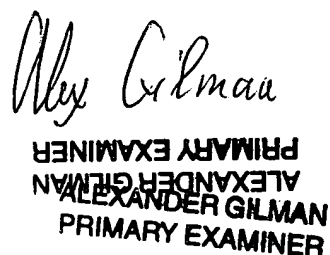 Alex Gilman
PRIMARY EXAMINER
ALEXANDER GILMAN
ALEXANDER GILMAN
PRIMARY EXAMINER